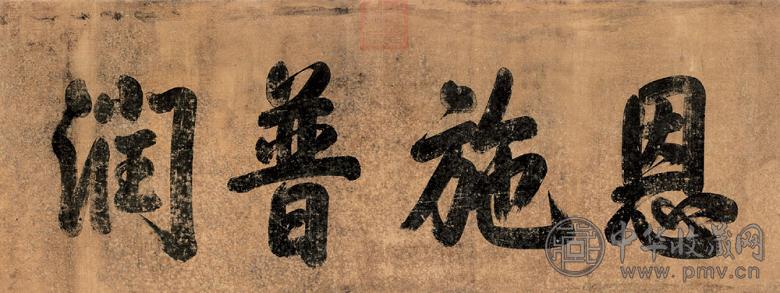 恩施普润
中华收藏网
www.pmv.cn